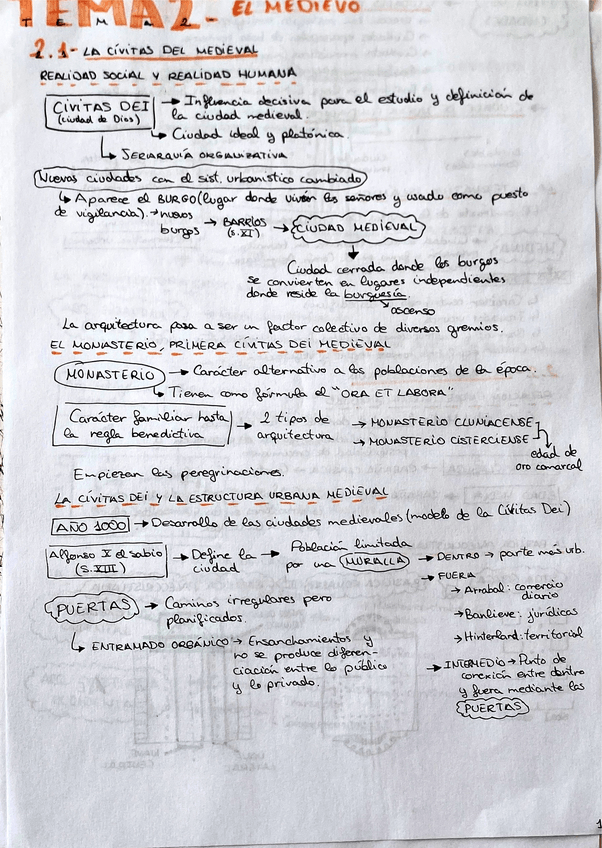 TEMA 2- EL MEDIEVO
T e M a 2
2.1- LA CÍVITAS DEL MEDIEVAL
REALIDAD SOCIAL Y REALIDAD HUMANA
CÍVITAS DEI
(ciudad de Dios)
→ Influencia decisiva para el estudio y definición de
la ciudad medieval.
↳ Ciudad ideal y platónica.
↳ JERIARQUÍA ORGANIZATIVA
Nuevas ciudades con el sist. urbanístico cambiado
↳ Aparece el BURGO (lugar donde vivían los señores y usado como puesto
de vigilancia). → nuevos
burgos → BARRIOS
(s.XI)
→ CIUDAD MEDIEVAL
Ciudad cerrada donde los burgos
se convierten en lugares independientes
donde reside la burguesía.
ascenso
La arquitectura pasa a ser un factor colectivo de diversos gremios.
EL MONASTERIO, PRIMERA CÍVITAS DEI MEDIEVAL
MONASTERIO → Carácter alternativo a las poblaciones de la época.
↳ Tienen como fórmula el "ORA ET LABORA"
Carácter familiar hasta
la regla benedictiva
→ 2 tipos de
arquitectura
→ MONASTERIO CLUNIACENSE
→ MONASTERIO CISTERCIENSE
edad de
oro comarcal
Empiezan las peregrinaciones.
LA CÍVITAS DEI Y LA ESTRUCTURA URBANA MEDIEVAL
AÑO 1000 → Desarrollo de las ciudades medievales (modelo de la Cívitas Dei)
Alfonso X el sabio
(S.XIII)
→ Define la
ciudad
→ Población limitada
por una MURALLA
→ DENTRO → parte más urb.
→ FUERA
→ Arrabal: comercio
diario
→ Banlieve: jurídicas
→ Hinterland: territorial
→ INTERMEDIO → Punto de
conexión entre dentro
y fuera mediante las
PUERTAS
PUERTAS → Caminos irregulares pero
planificados.
↳ ENTRAMADO ORGÁNICO → Ensanchamientos y
no se produce diferen-
ciación entre lo público
y lo privado.
1